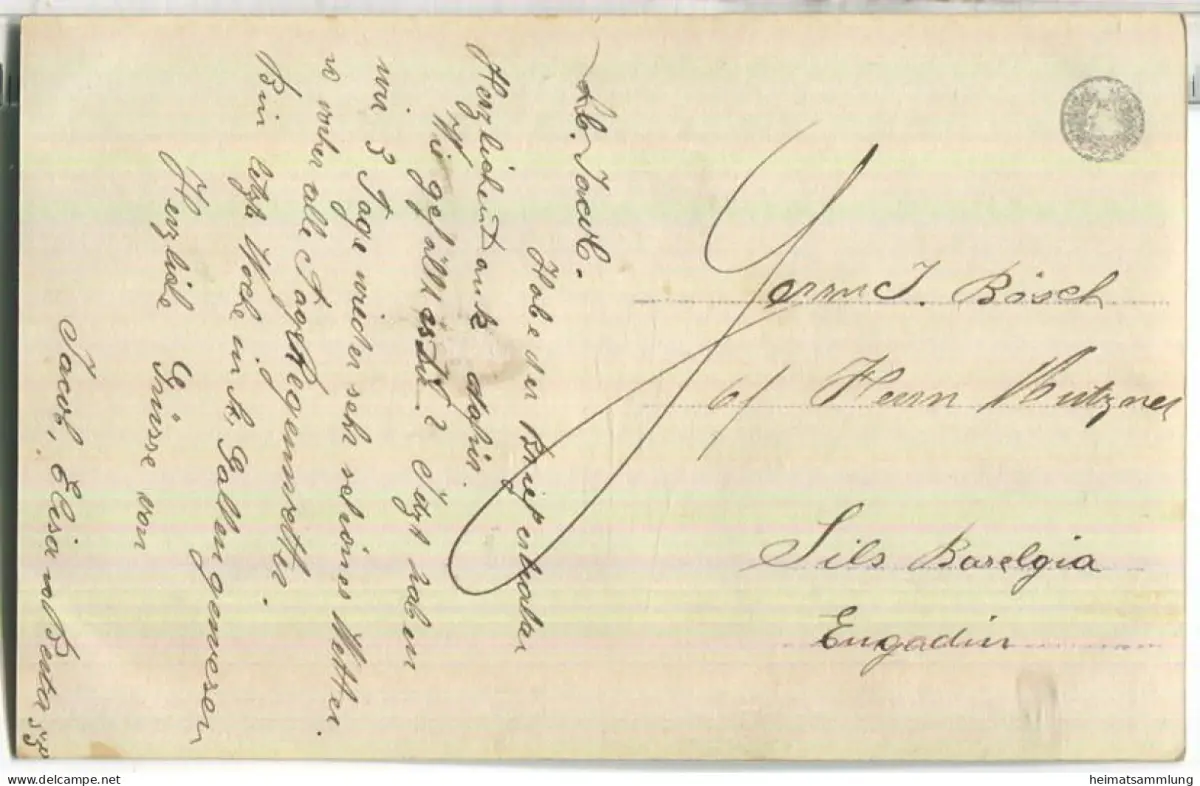 Lb. Jacob.
Habe den Brief erhalten
Herzlichen Dank dafür.
Wie gefällt es Dir? Jetzt haben
wir 3 Tage wieder sehr schönes Wetter
vorher alle Tag Regenwetter.
Bin letzte Woche in St. Gallen gewesen
Herzliche Grüsse von
Jacob, Elisa u Berta
Herrn J. Bösch
b/ Herrn Mutzner
Sils Baselgia
Engadin
heimatsammlung